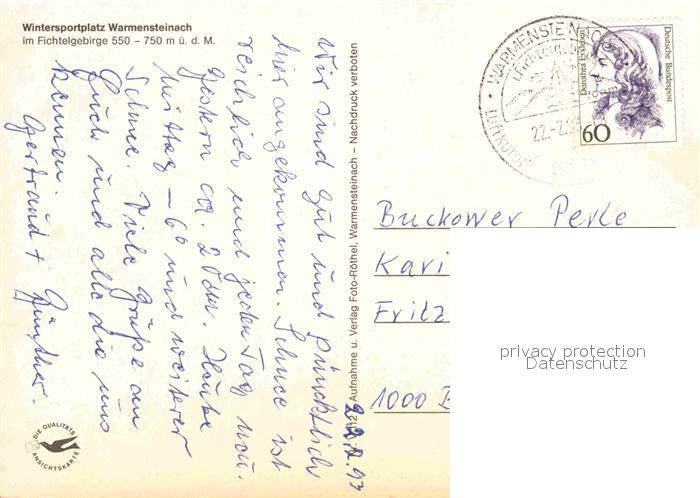 Wintersportplatz Warmensteinach
im Fichtelgebirge 550 – 750 m ü. d. M.
Wir sind gut und pünktlich
hier angekommen. Schnee ist
reichlich und jeden Tag neu.
Gestern ca. 20 cm. Heute
Mittag – 6° und weiterer
Schnee. Viele Grüße an
Euch und alle die uns
kennen.
Gertraud + Günther.
22.2.93
Aufnahme u. Verlag Foto-Röthel, Warmensteinach – Nachdruck verboten
DIE QUALITÄTS
ANSICHTSKARTE
WARMENSTEINACH
Luftkurort
22.-2.
Deutsche Bundespost
Dorothea Erxleben
60
Buckower Perle
Kari
Fritz
1000 B
privacy protection
Datenschutz